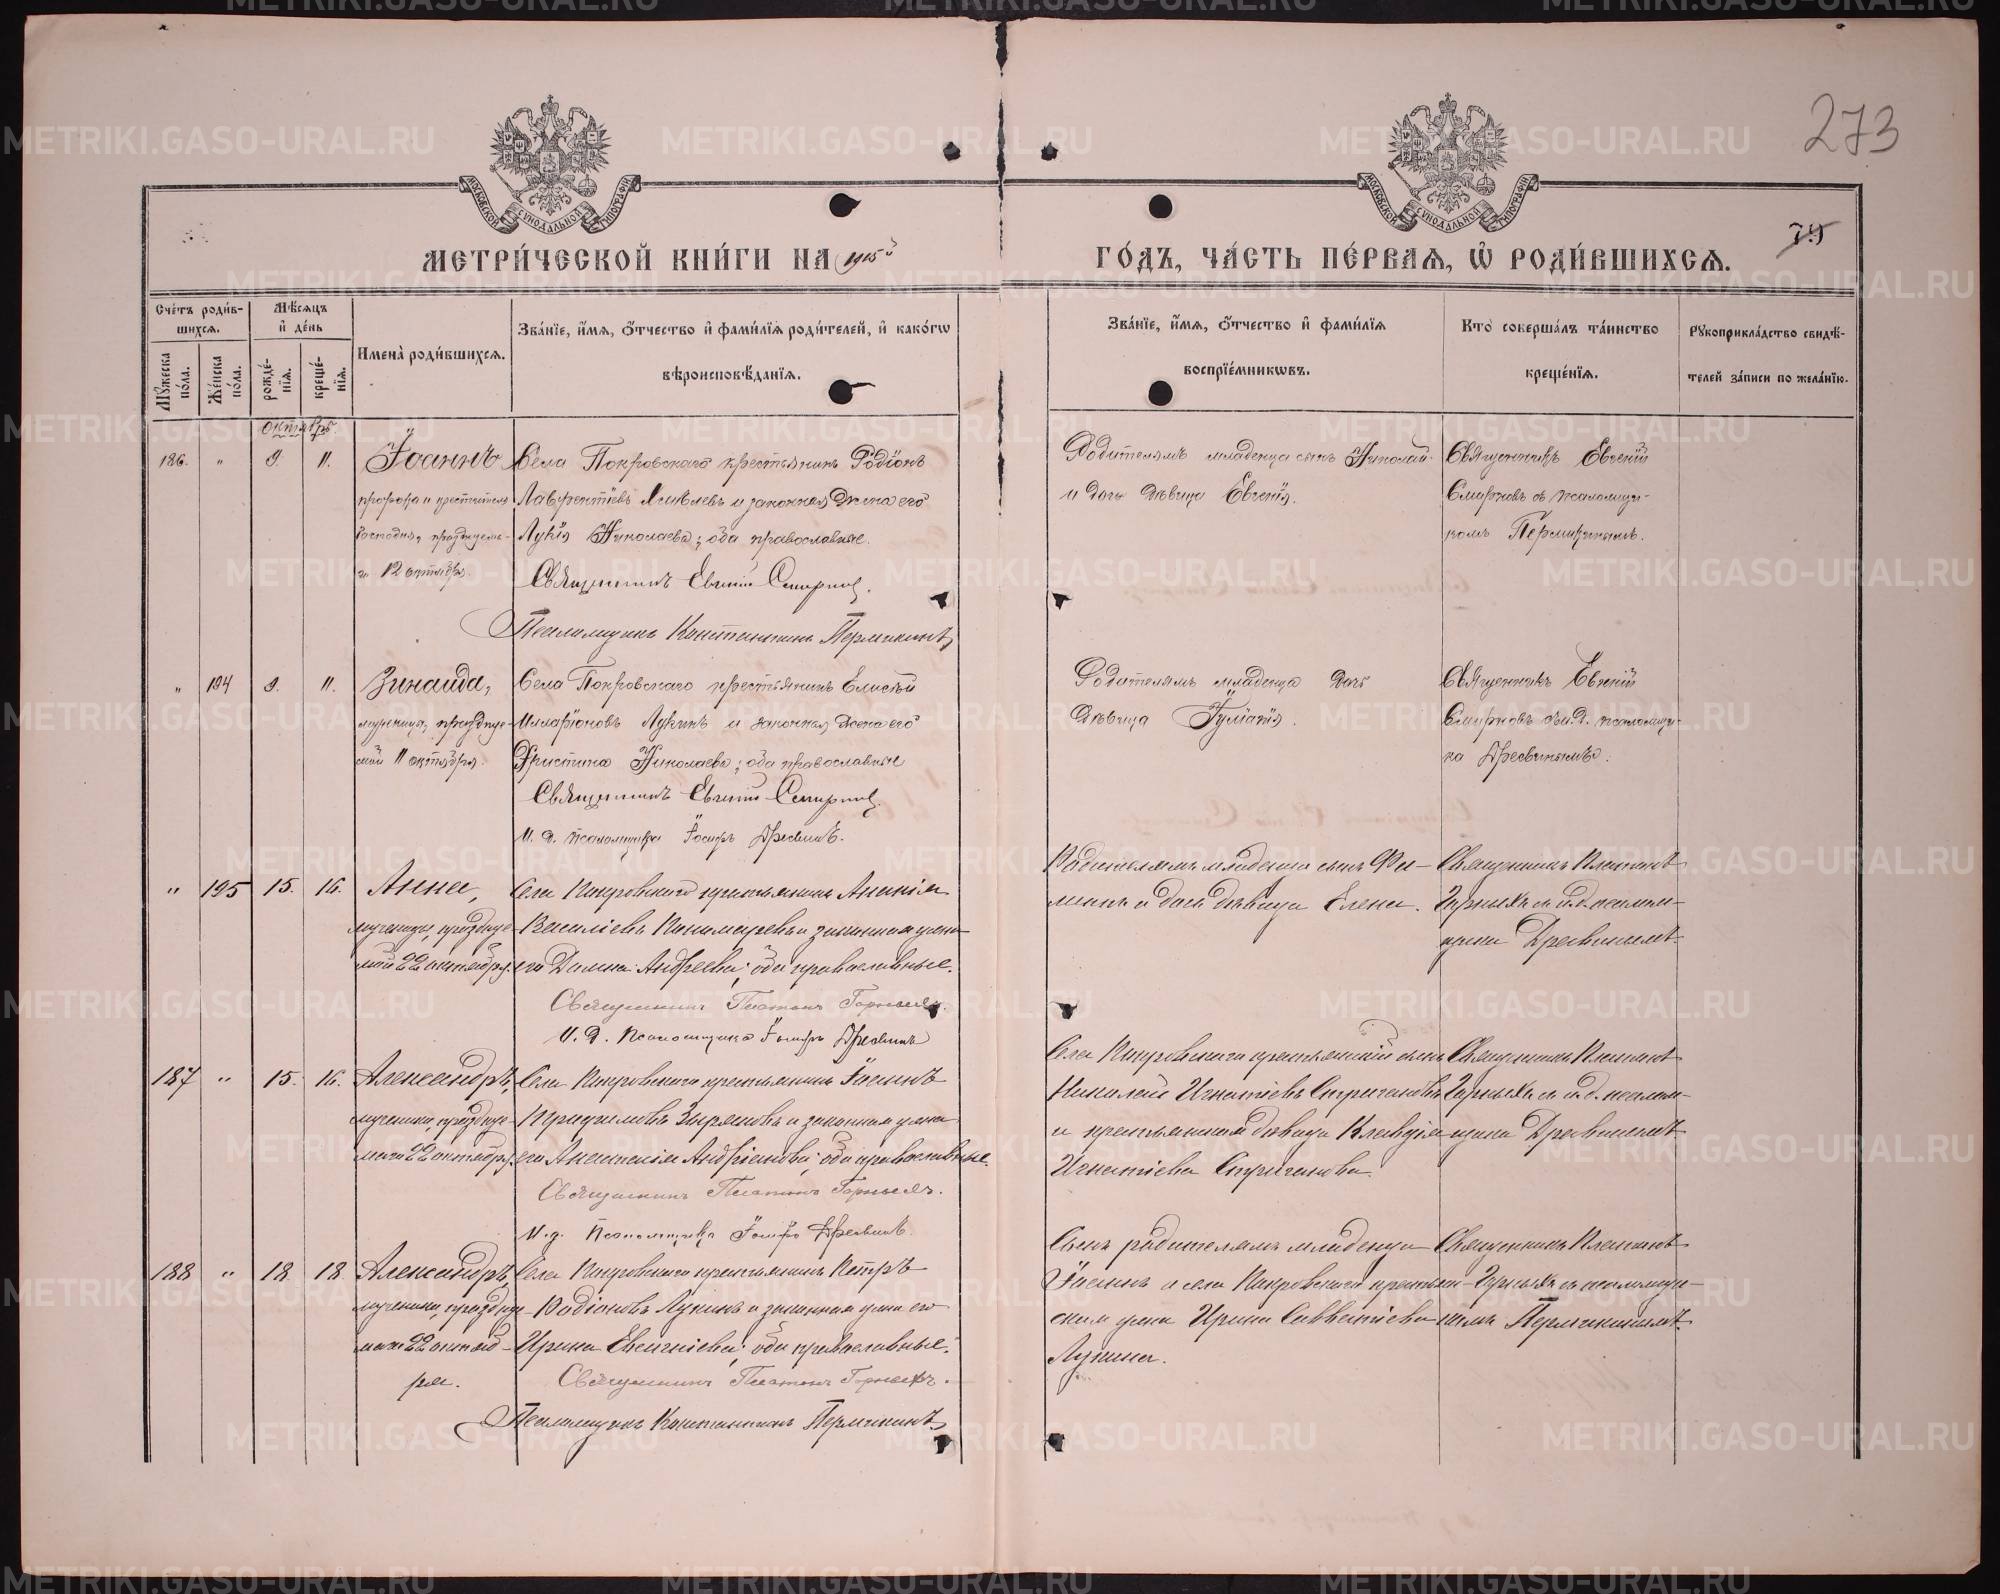 273
МОСКОВСКОЙ СѴНОДАЛЬНОЙ ТИПОГРАФІИ
МОСКОВСКОЙ СѴНОДАЛЬНОЙ ТИПОГРАФІИ
79
МЕТРИ́ЧЕСКОЙ КНИ́ГИ НА 1915й ГО́ДЪ, ЧА́СТЬ ПЕ́РВАЯ, Ѡ РОДИ́ВШИХСЯ.
Сче́тъ роди́в-
шихся.
Мѣ́сяцъ
и҆ де́нь
Мꙋ́жеска по́ла.
Же́нска по́ла.
рожде́-нїя.
креще́-нїя.
Имена̀ роди́вшихся.
Зва́нїе, и҆́мя, ѻ҆́тчество и҆ фами́лїя роди́телей, и҆ како́гѡ
вѣроисповѣ́данїя.
Зва́нїе, и҆́мя, ѻ҆́тчество и҆ фами́лїя
воспрїе́мникѡвъ.
Кто̀ соверша́лъ та́инство
креще́нїя.
Рꙋкоприкла́дство свидѣ́-
телей за́писи по жела́нїю.
октября
186. " 9. 11. Іоаннъ
пророка и крестителя
Господня, празднуема-
го 12 октября.
Села Покровскаго крестьянинъ Родіонъ
Лаврентіевъ Яковлевъ и законная жена его
Лукія Николаева; оба православные.
Священникъ Евгеній Смирновъ.
Псаломщикъ Константинъ Пермикинъ
Родителямъ младенца сынъ Николай
и дочь дѣвица Евгенія.
Священникъ Евгеній
Смирновъ съ псаломщи-
комъ Пермикинымъ.
" 194 9. 11. Зинаида,
мученица, празднуе-
мой 11 октября.
Села Покровскаго крестьянинъ Елисей
Илларіоновъ Лукинъ и законная жена его
Христина Николаева; оба православные
Священникъ Евгеній Смирновъ.
И. д. псаломщика Іосифъ Дресвинъ.
Родителямъ младенца дочь
дѣвица Гуліанія.
Священникъ Евгеній
Смирновъ съ и. д. псаломщи-
ка Дресвинымъ.
" 195 15. 16. Анна,
мученицы, празднуе-
мой 22 октября.
Села Покровскаго крестьянинъ Ананія
Василіевъ Пономаревъ и законная жена
его Домна Андреева; оба православные.
Священникъ Платонъ Горныхъ.
И. д. псаломщика Іосифъ Дресвинъ
Родителямъ младенца сынъ Фи-
липпъ и дочь дѣвица Елена.
Священникъ Платонъ
Горныхъ съ и. д. псалом-
щика Дресвинымъ.
187 " 15. 16. Александръ,
мученика, празднуе-
маго 22 октября.
Села Покровскаго крестьянинъ Іоаннъ
Зыряновъ и законная жена
его Анастасія Андріанова; оба православные.
Священникъ Платонъ Горныхъ.
И. д. псаломщика Іосифъ Дресвинъ.
Села Покровскаго крестьянскій сынъ
Николай Игнатіевъ Стригановъ
и крестьянская дѣвица Клавдія
Игнатіева Стриганова.
Священникъ Платонъ
Горныхъ съ и. д. псалом-
щика Дресвинымъ.
188 " 18 18 Александръ,
мученика, праздну-
маго 22 октяб-
ря.
Села Покровскаго крестьянинъ Петръ
Родіоновъ Лукинъ и законная жена его
Ирина Евсигніева; оба православные.
Священникъ Платонъ Горныхъ.
Псаломщикъ Константинъ Пермикинъ
Сынъ родителямъ младенца
Іоаннъ и села Покровскаго крестьян-
ская жена Ирина Савватіева
Лукина.
Священникъ Платонъ
Горныхъ съ псаломщи-
комъ Пермикинымъ.